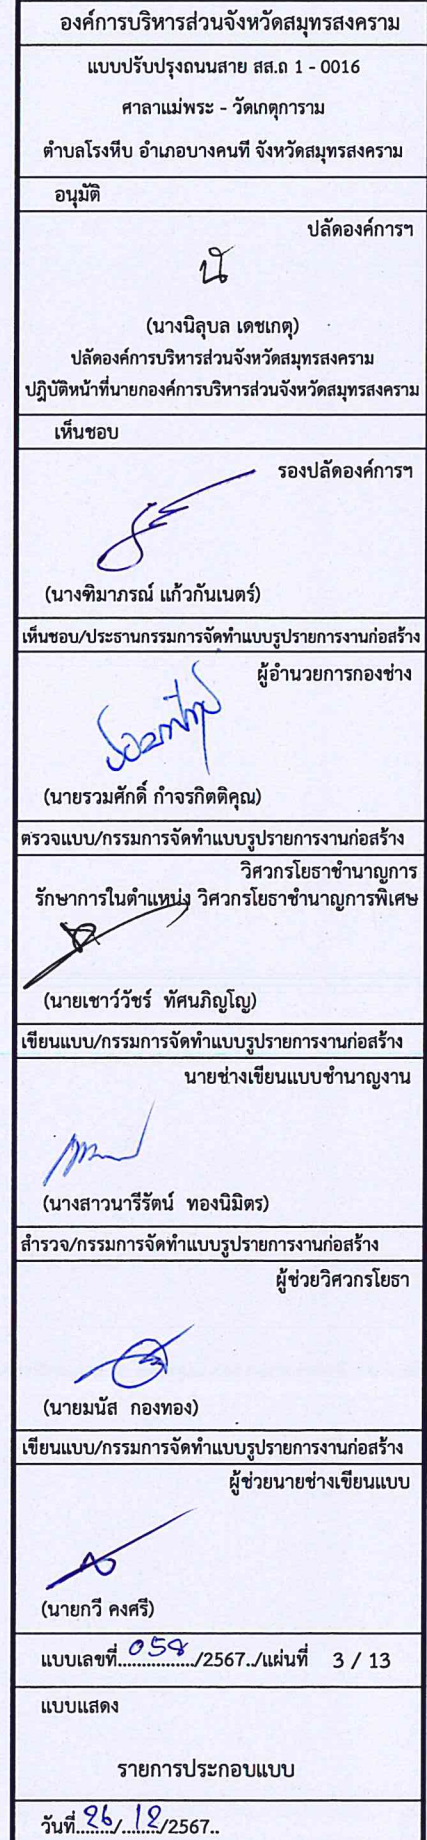 องค์การบริหารส่วนจังหวัดสมุทรสงคราม
แบบปรับปรุงถนนสาย สส.ถ 1 - 0016
ศาลาแม่พระ - วัดเกตุการาม
ตำบลโรงหีบ อำเภอบางคนที จังหวัดสมุทรสงคราม
อนุมัติ
ปลัดองค์การฯ
(นางนิลุบล เดชเกตุ)
ปลัดองค์การบริหารส่วนจังหวัดสมุทรสงคราม
ปฎิบัติหน้าที่นายกองค์การบริหารส่วนจังหวัดสมุทรสงคราม
เห็นชอบ
รองปลัดองค์การฯ
(นางฑิมาภรณ์ แก้วกันเนตร์)
เห็นชอบ/ประธานกรรมการจัดทำแบบรูปรายการงานก่อสร้าง
ผู้อำนวยการกองช่าง
(นายรวมศักดิ์ กำจรกิตติคุณ)
ตรวจแบบ/กรรมการจัดทำแบบรูปรายการงานก่อสร้าง
วิศวกรโยธาชำนาญการ
รักษาการในตำแหน่ง วิศวกรโยธาชำนาญการพิเศษ
(นายเชาว์วัชร์ ทัศนภิญโญ)
เขียนแบบ/กรรมการจัดทำแบบรูปรายการงานก่อสร้าง
นายช่างเขียนแบบชำนาญงาน
(นางสาวนารีรัตน์ ทองนิมิตร)
สำรวจ/กรรมการจัดทำแบบรูปรายการงานก่อสร้าง
ผู้ช่วยวิศวกรโยธา
(นายมนัส กองทอง)
เขียนแบบ/กรรมการจัดทำแบบรูปรายการงานก่อสร้าง
ผู้ช่วยนายช่างเขียนแบบ
(นายกวี คงศรี)
แบบเลขที่...058.../2567../แผ่นที่ 3 / 13
แบบแสดง
รายการประกอบแบบ
วันที่..26../..12../2567..